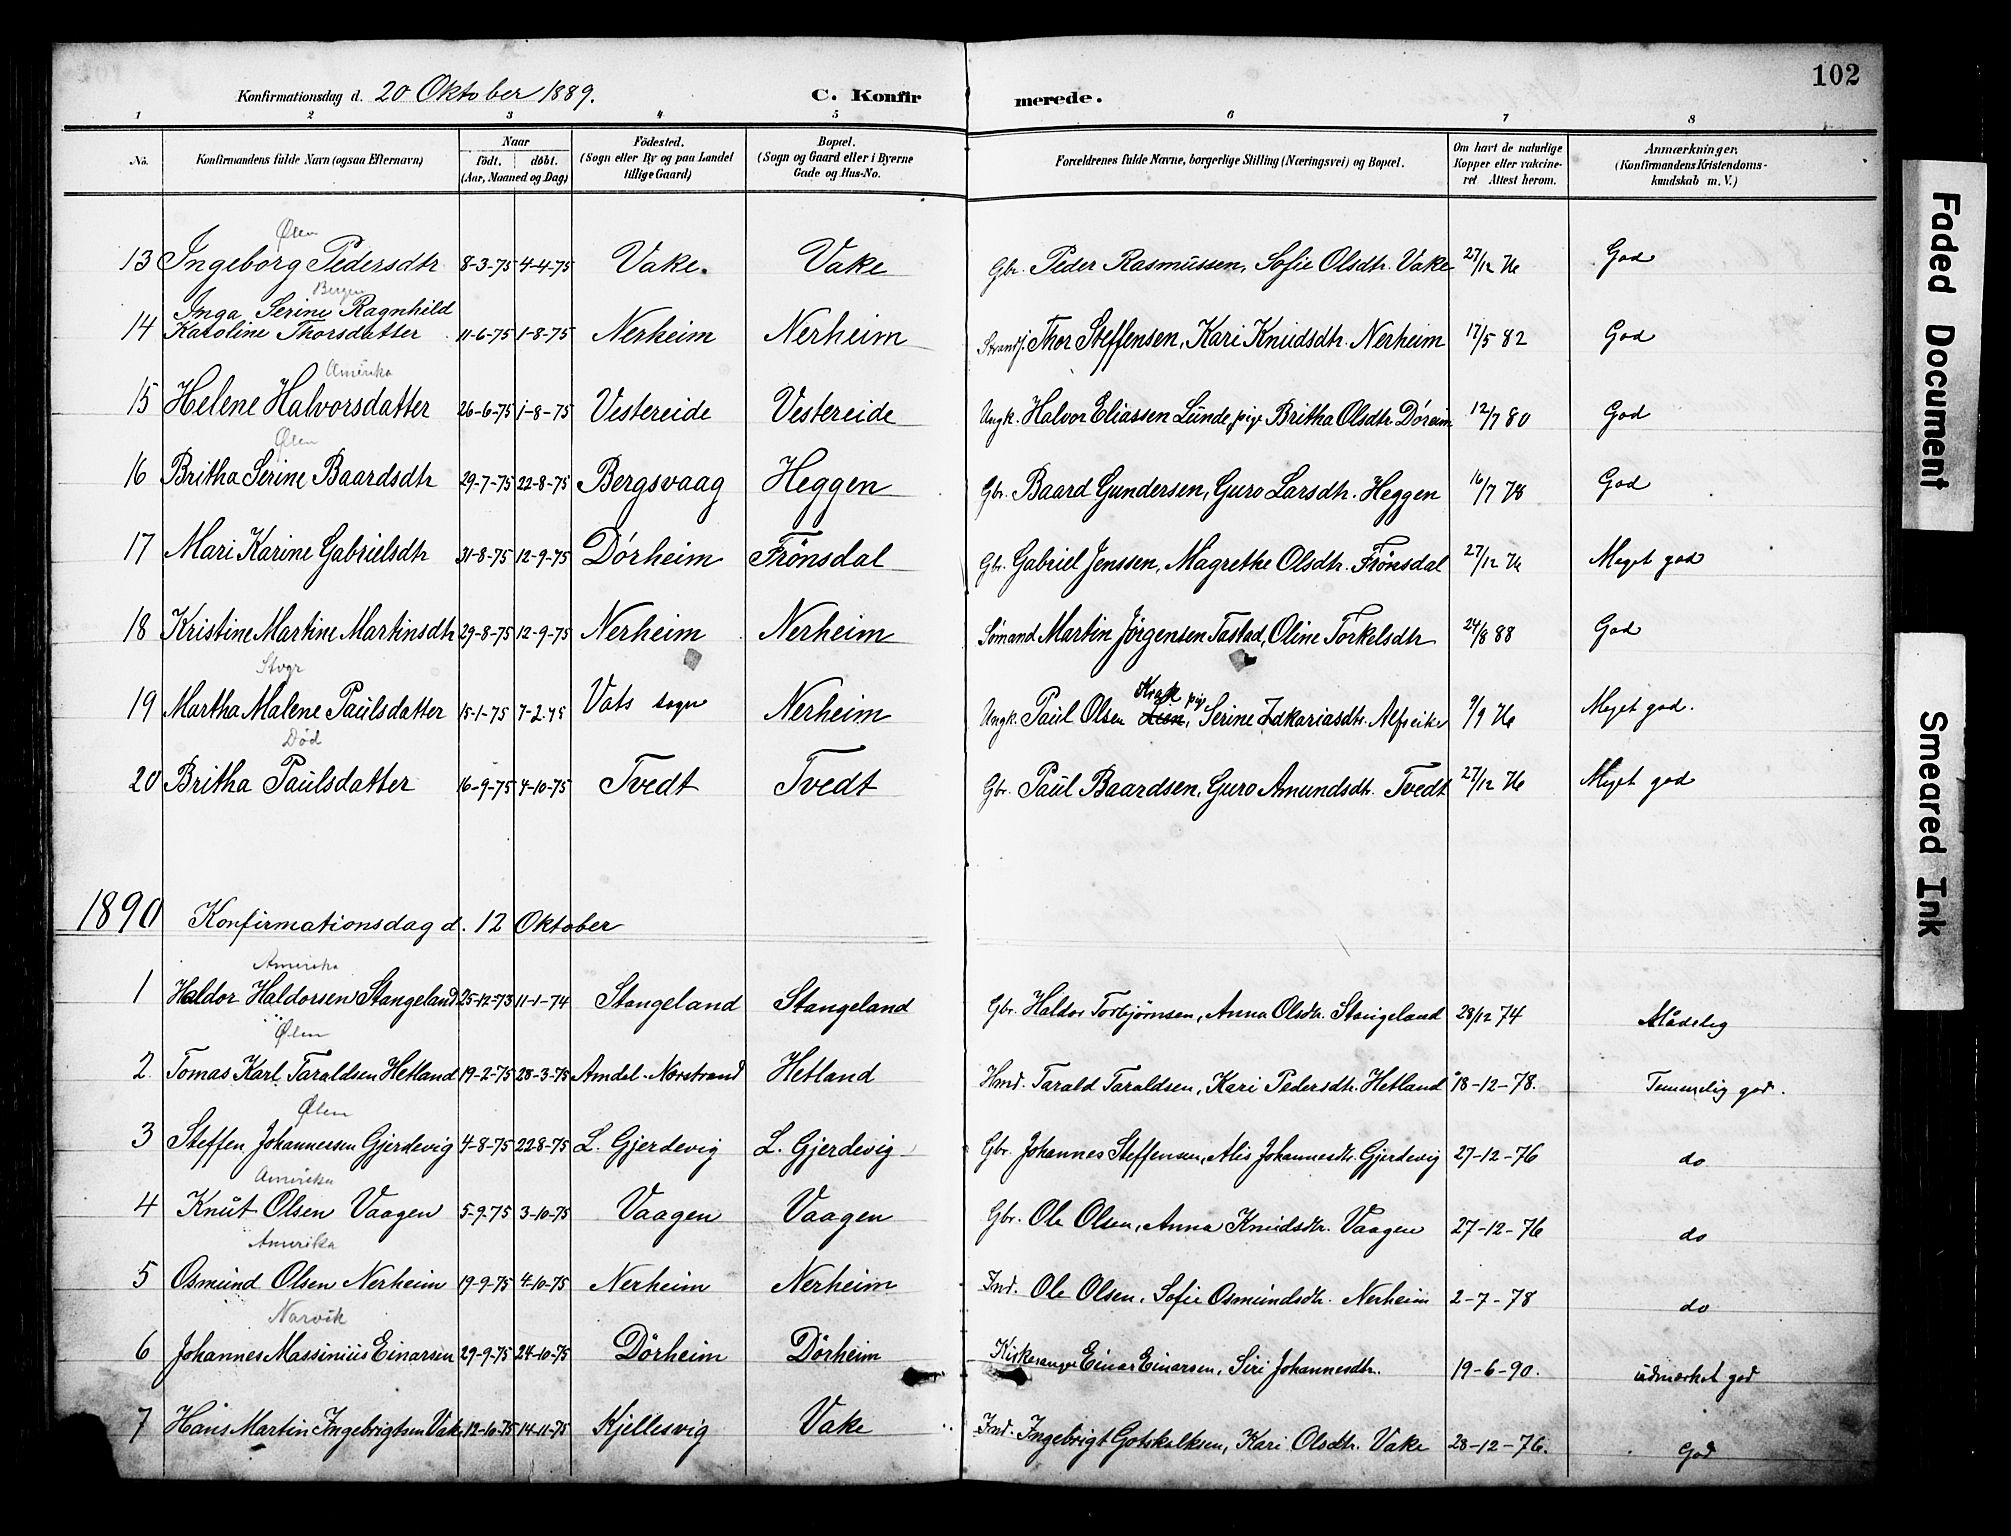 102
Konfirmationsdag d. 20 Oktober 1889.
C. Konfirmerede.
1 2 3 4 5 6 7 8
No. Konfirmandens fulde Navn (ogsaa Efternavn) Naar født. døbt. (Aar, Maaned og Dag) Födested. (Sogn eller By og paa Landet tillige Gaard) Bopæl. (Sogn og Gaard eller i Byerne Gade og Hus-No. Forældrenes fulde Navne, borgerlige Stilling (Næringsvei) og Bopæl. Om havt de naturlige Kopper eller vakcineret Attest herom. Anmærkninger. (Konfirmandens Kristendomskundskab m. V.)
Ølen
13 Ingeborg Pedersdtr 8-3-75 4-4-75 Vake. Vake Gbr. Peder Rasmussen, Sofie Olsdtr. Vake 27/12 76 God
Bergen
Inga Serine Ragnhild
14 Karoline Thorsdatter 11-6-75 1-8-75 Nerheim Nerheim Strands. Thor Steffensen, Kari Knudsdtr. Nerheim 17/5 82 God
Amerika
15 Helene Halvorsdatter 26-6-75 1-8-75 Vestereide Vestereide Ungk. Halvor Eliassen Lunde, pige Britha Olsdtr. Döreim 12/7 80 God
Ølen
16 Britha Serine Baardsdtr 29-7-75 22-8-75 Bergsvaag Heggen Gbr. Baard Gundersen, Guro Larsdtr. Heggen 16/7 78 God
17 Mari Karine Gabrielsdtr 31-8-75 12-9-75 Dörheim Frönsdal Gbr. Gabriel Jenssen, Magrethe Olsdtr. Frönsdal 27/12 76 Meget god
18 Kristine Martine Martinsdtr 29-8-75 12-9-75 Nerheim Nerheim Sömand Martin Jörgensen Tastad, Oline Torkelsdtr 24/8 88 God
Stvgr
19 Martha Malene Paulsdatter 15-1-75 7-2-75 Vats sogn Nerheim Ungk. Paul Olsen Lien, pige Serine Zakariasdtr. 9/9 76 Meget god.
Död
20 Britha Paulsdatter 16-9-75 4-10-75 Tvedt Tvedt Gbr. Paul Baardsen, Guro Amundsdtr. Tvedt 27/12 76 Meget god
1890 Konfirmationsdag d. 12 Oktober
Amerika
1 Haldor Haldorsen Stangeland 25-12-73 11-1-74 Stangeland Stangeland Gbr. Haldor Torbjørnsen, Anna Olsdtr. Stangeland 28/12 74 Mådelig
Ølen
2 Tomas Karl Taraldsen Hetland 19-2-75 28-3-75 Amdal-Norstrand Hetland Hmd. Tarald Taraldsen, Kari Pedersdtr. Hetland 18-12-78. Temmelig god.
Ølen
3 Steffen Johannessen Gjerdevig 4-8-75 22-8-75 L. Gjerdevig L. Gjerdevig Gbr. Johannes Steffensen, Alis Johannesdtr. Gjerdevig 27-12-76 do
Amerika
4 Knut Olsen Vaagen 5-9-75 3-10-75 Vaagen Vaagen Gbr. Ole Olsen, Anna Knudsdtr. Vaagen 27-12-76 do
Amerika
5 Osmund Olsen Nerheim 19-9-75 4-10-75 Nerheim Nerheim Ind. Ole Olsen, Sofie Osmundsdtr. Nerheim 2-7-78 do
Narvik
6 Johannes Massinius Einarsen 29-9-75 24-10-75 Dörheim Dörheim Kirkesanger Einar Einarsen, Siri Johannesdtr. 19-6-90. udmærket god
7 Hans Martin Ingebrigtsen Vake 12-10-75 14-11-75 Kjellesvig Vake Ind. Ingebrigt Gotskalksen, Kari Olsdtr. Vake 28-12-76. God
Faded Document
Smeared Ink